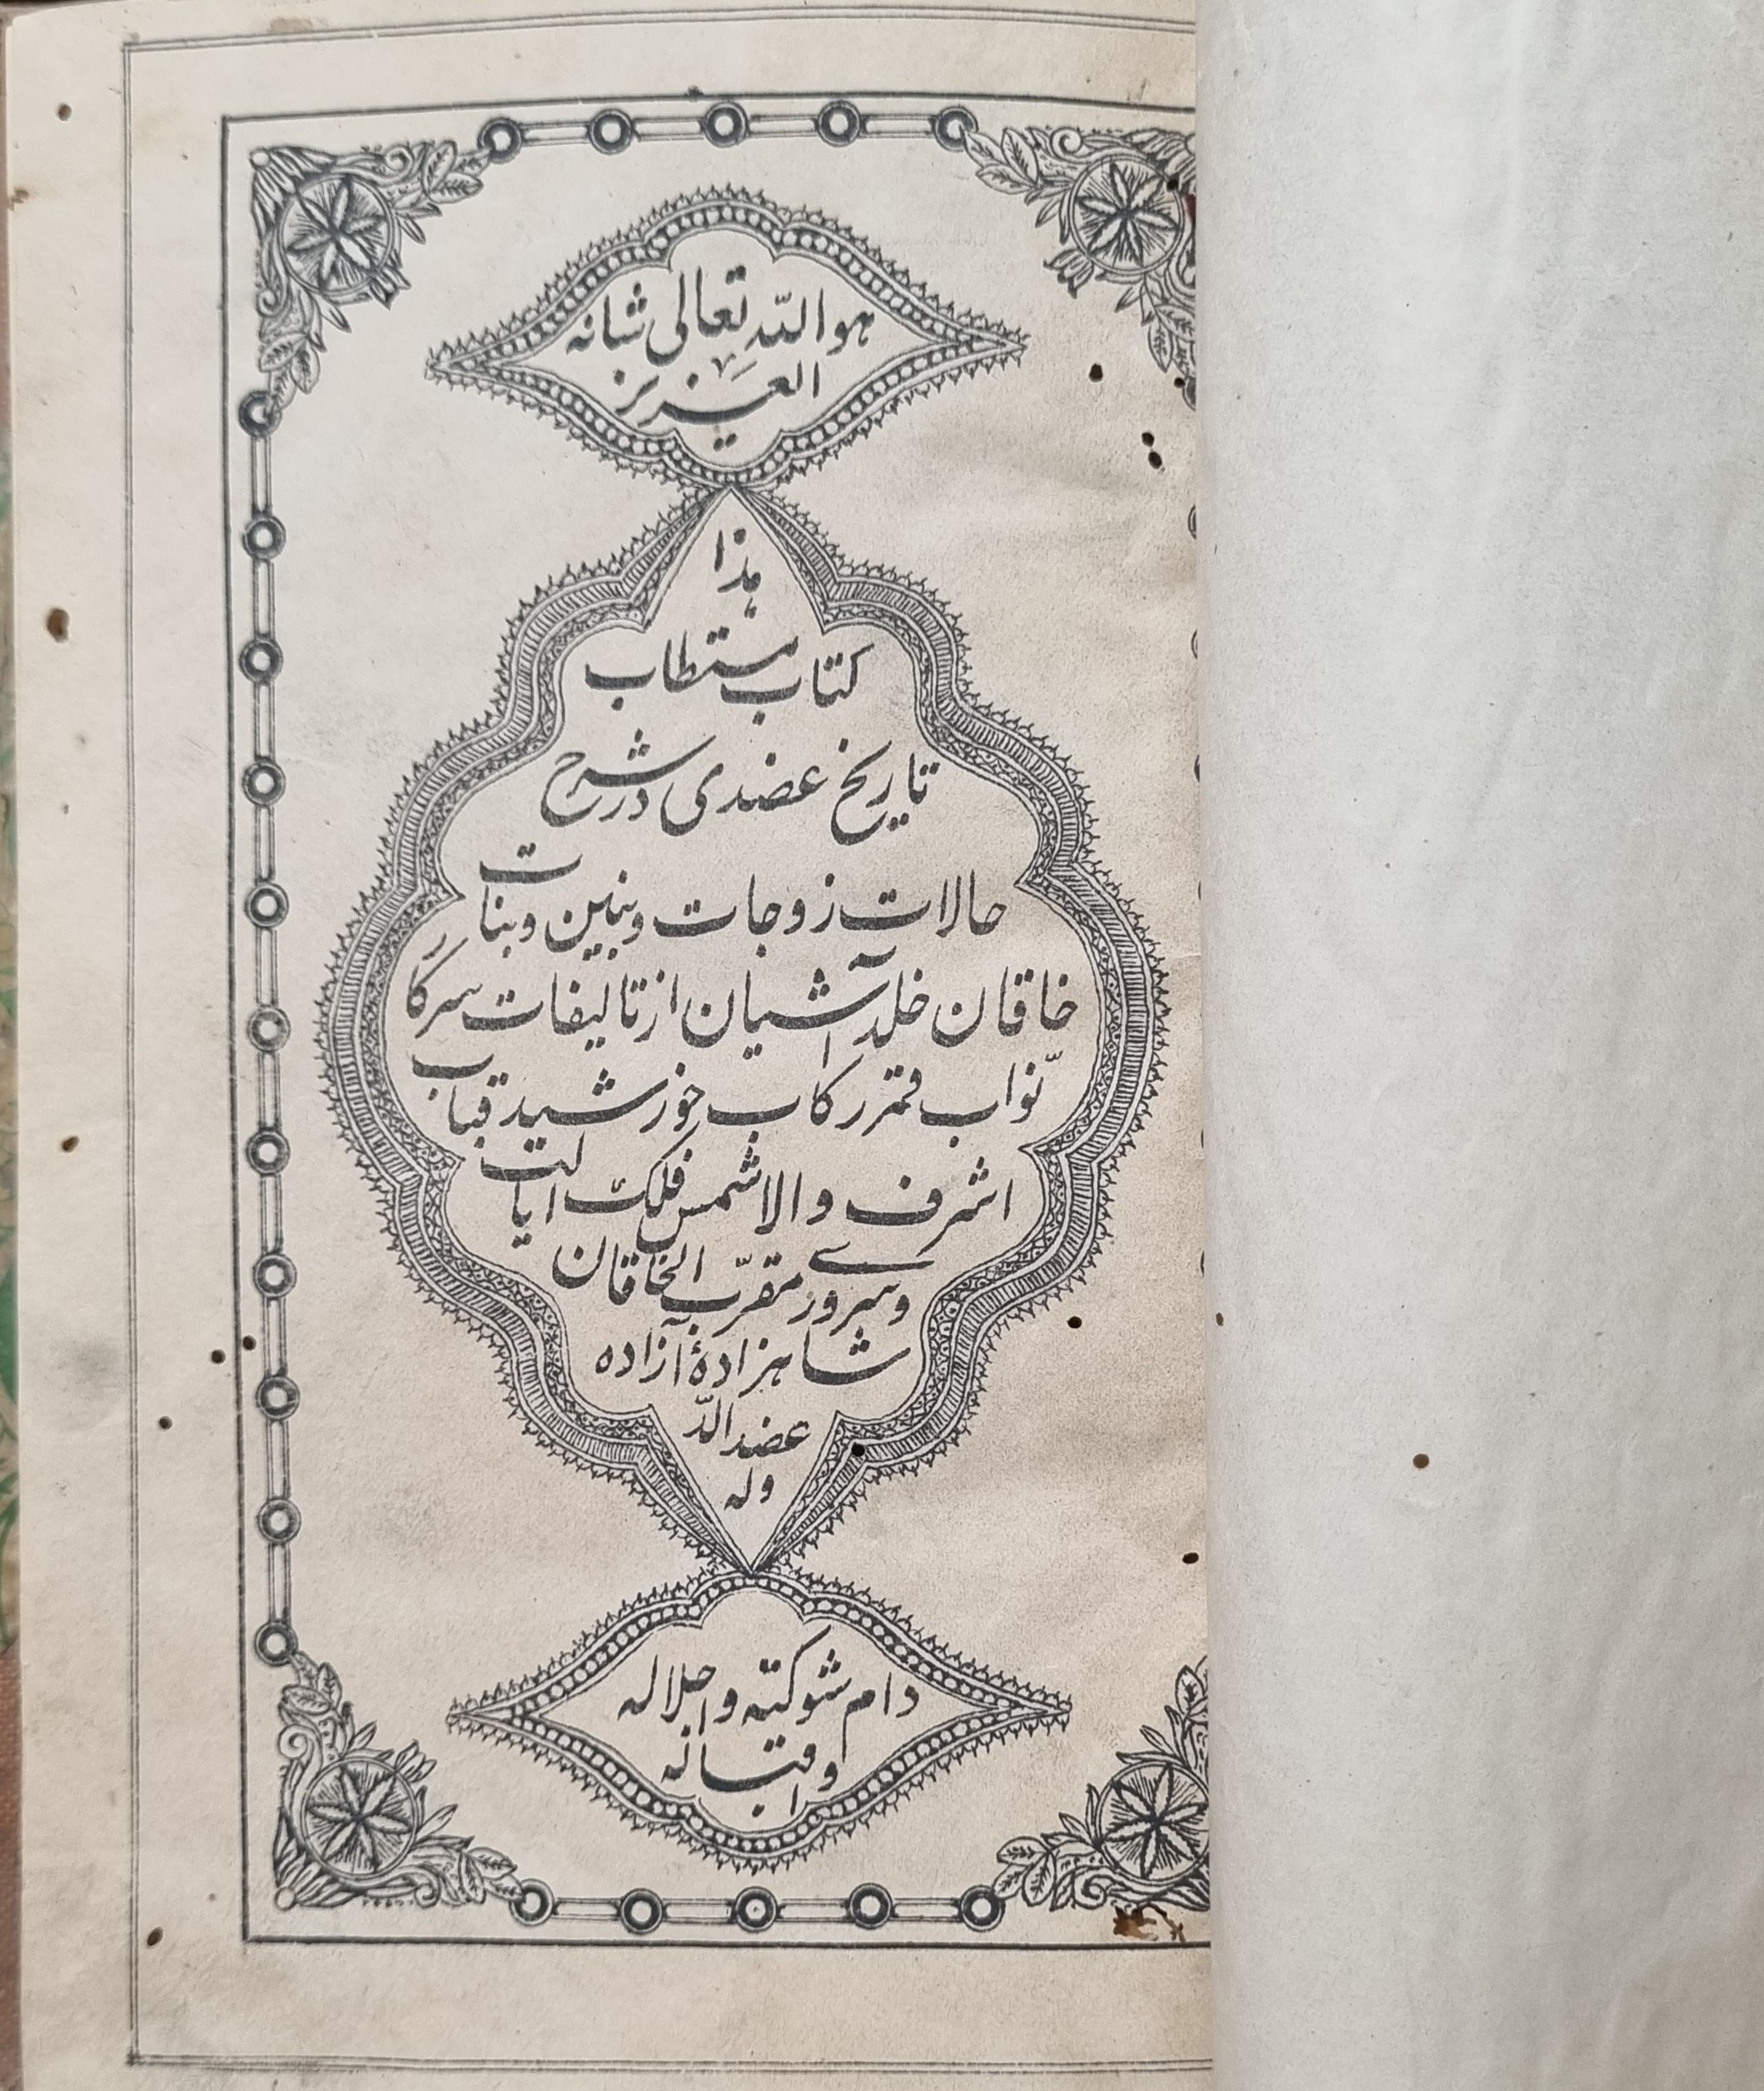 هو الله تعالی شانه
العزیز
هذا
کتاب مستطاب
تاریخ عضدی در شرح
حالات زوجات و بنین و بنات
خاقان خلد آشیان از تالیفات سرکا
نوّاب قمر رکاب خورشید قباب
اشرف والا شمس فلک ایالت
و سروری مقرّب الخاقان
شاهزادهٔ آزاده
عضد الدّ
وله
دام شوکته و اجلاله
و